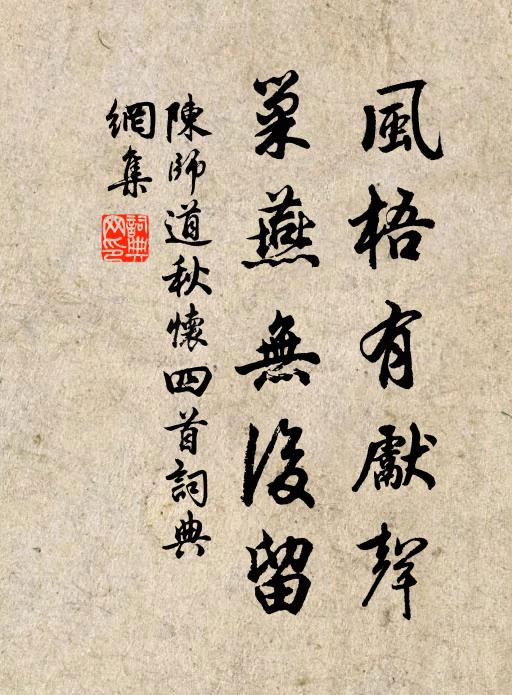 風梧有獻聲
巢燕無後留
陳師道秋懷四首詞典
網集
詞典
网印